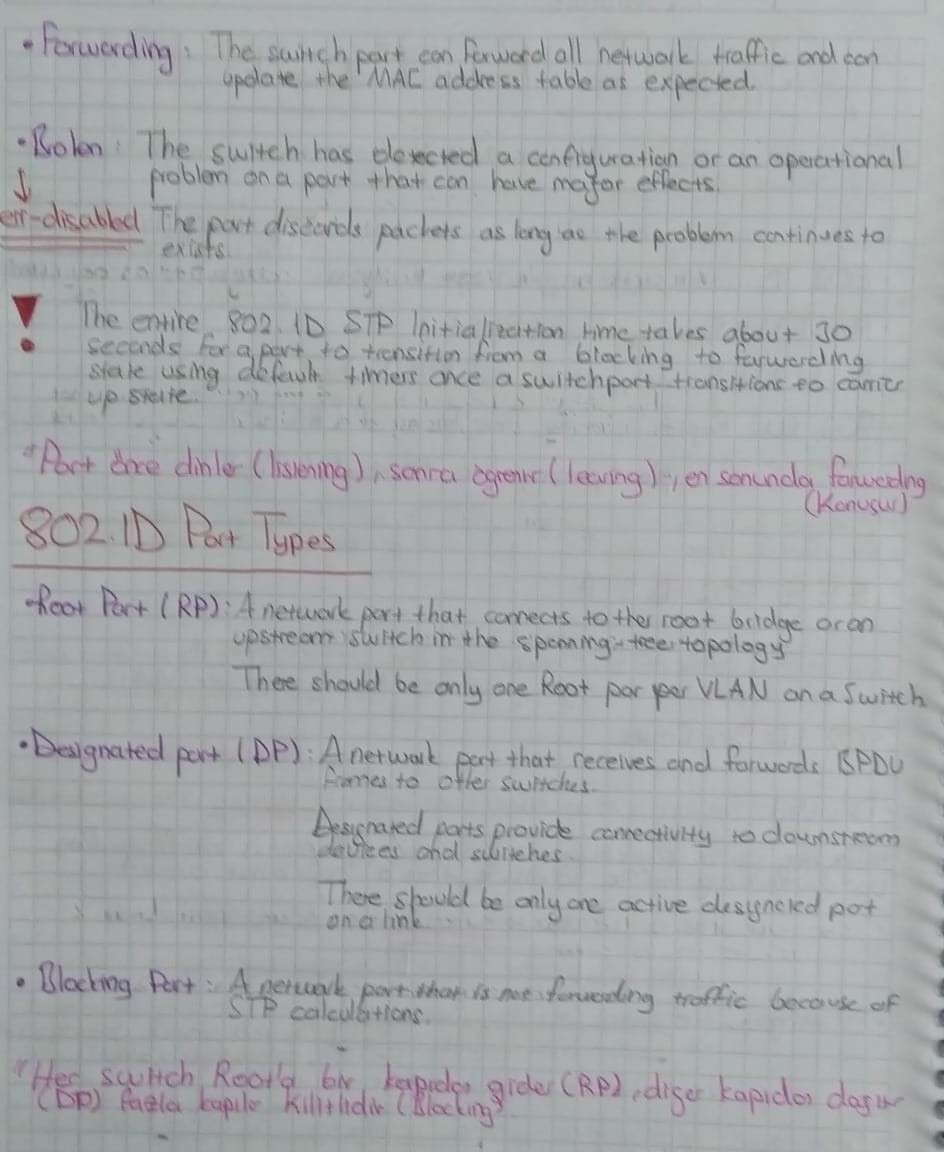 • Forwarding: The switch port can forward all network traffic and can
update the MAC address table as expected.
• Broken: The switch has detected a configuration or an operational
problem on a port that can have major effects.
↓
err-disabled The port discards packets as long as the problem continues to
exists.
! The entire 802.1D STP Initialization time takes about 30
seconds for a port to transition from a blocking to forwarding
state using default timers once a switchport transitions to carrier
up state.
"Port önce dinler (listening), sonra ögrenir (learing), en sonunda forwarding
(Konusur)
802.1D Port Types
• Root Port (RP): A network port that connects to the root bridge or an
upstream switch in the spanning-tree topology
There should be only one Root por per VLAN on a Switch
• Designated port (DP): A network port that receives and forwards BPDU
frames to other switches.
Designated ports provide connectivity to downstream
devices and switches.
There should be only one active designated pot
on a link
• Blocking Port: A network port that is not forwarding traffic because of
STP calculations.
"Her switch Root'a bir kapıdan gider (RP), diger kapıdan dagıtır
(DP) fazla kapılar kilitlidir (Blocking)